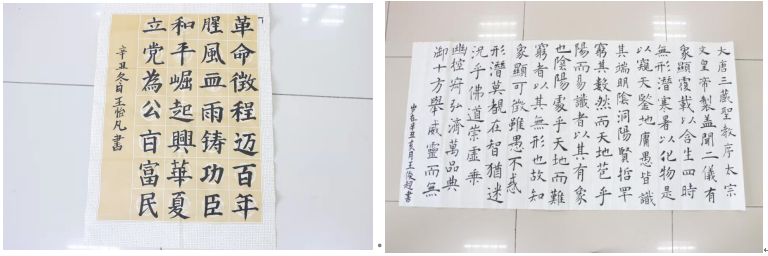 革命徵程迈百年
腥風血雨铸功臣
和平崛起興華夏
立党為公百富民
辛丑冬日王怡凡書
大唐三藏聖教序太宗
文皇帝製蓋聞二儀有
象顯覆載以含生四時
無形潛寒暑以化物是
以窺天鑒地庸愚皆識
其端明陰洞陽賢哲罕
窮其數然而天地苞乎
陽而易識者以其有象
也陰陽處乎天地而難
窮者以其無形也故知
象顯可徵雖愚不惑
形潛莫覩在智猶迷
況乎佛道崇虛乘
幽控寂弘濟萬品典
御十方舉威靈而無
辛丑月王俊超書